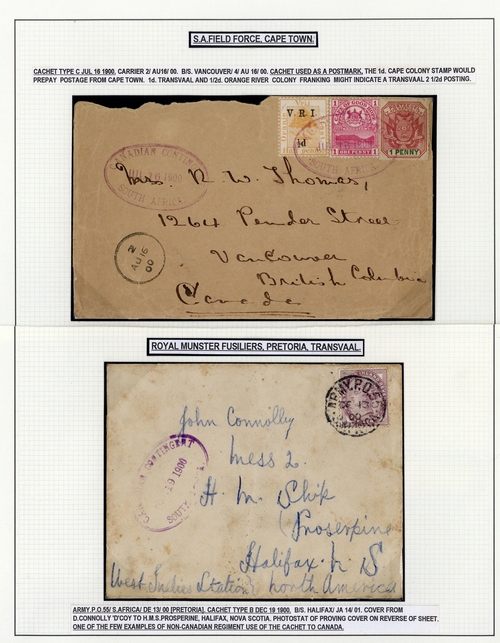 S.A.FIELD FORCE, CAPE TOWN.
CACHET TYPE C JUL 16 1900, CARRIER 2/ AU16/ 00. B/S. VANCOUVER/ 4/ AU 16/ 00. CACHET USED AS A POSTMARK, THE 1d. CAPE COLONY STAMP WOULD
PREPAY POSTAGE FROM CAPE TOWN. 1d. TRANSVAAL AND 1/2d. ORANGE RIVER COLONY FRANKING MIGHT INDICATE A TRANSVAAL 2 1/2d POSTING.
V.R.I
½d
1 PENNY
CANADIAN CONTINGENT
JUL 16 1900
SOUTH AFRICA
Mrs. R. W. Thomas,
1264 Pender Street
Vancouver
British Columbia
Canada
2
AU 16
00
ROYAL MUNSTER FUSILIERS, PRETORIA, TRANSVAAL.
ARMY.P.O.55
DE 13
00
John Connolly
Mess 2.
H. M. Ship
Proserpine
Halifax. N. S
West Indies Station north America
CONTINGENT
19 1900
SOUTH
ARMY.P.O.55/ S.AFRICA/ DE 13/ 00 [PRETORIA]. CACHET TYPE B DEC 19 1900, B/S. HALIFAX/ JA 14/ 01. COVER FROM
D.CONNOLLY 'D'COY TO H.M.S.PROSPERINE, HALIFAX, NOVA SCOTIA. PHOTOSTAT OF PROVING COVER ON REVERSE OF SHEET.
ONE OF THE FEW EXAMPLES OF NON-CANADIAN REGIMENT USE OF THE CACHET TO CANADA.